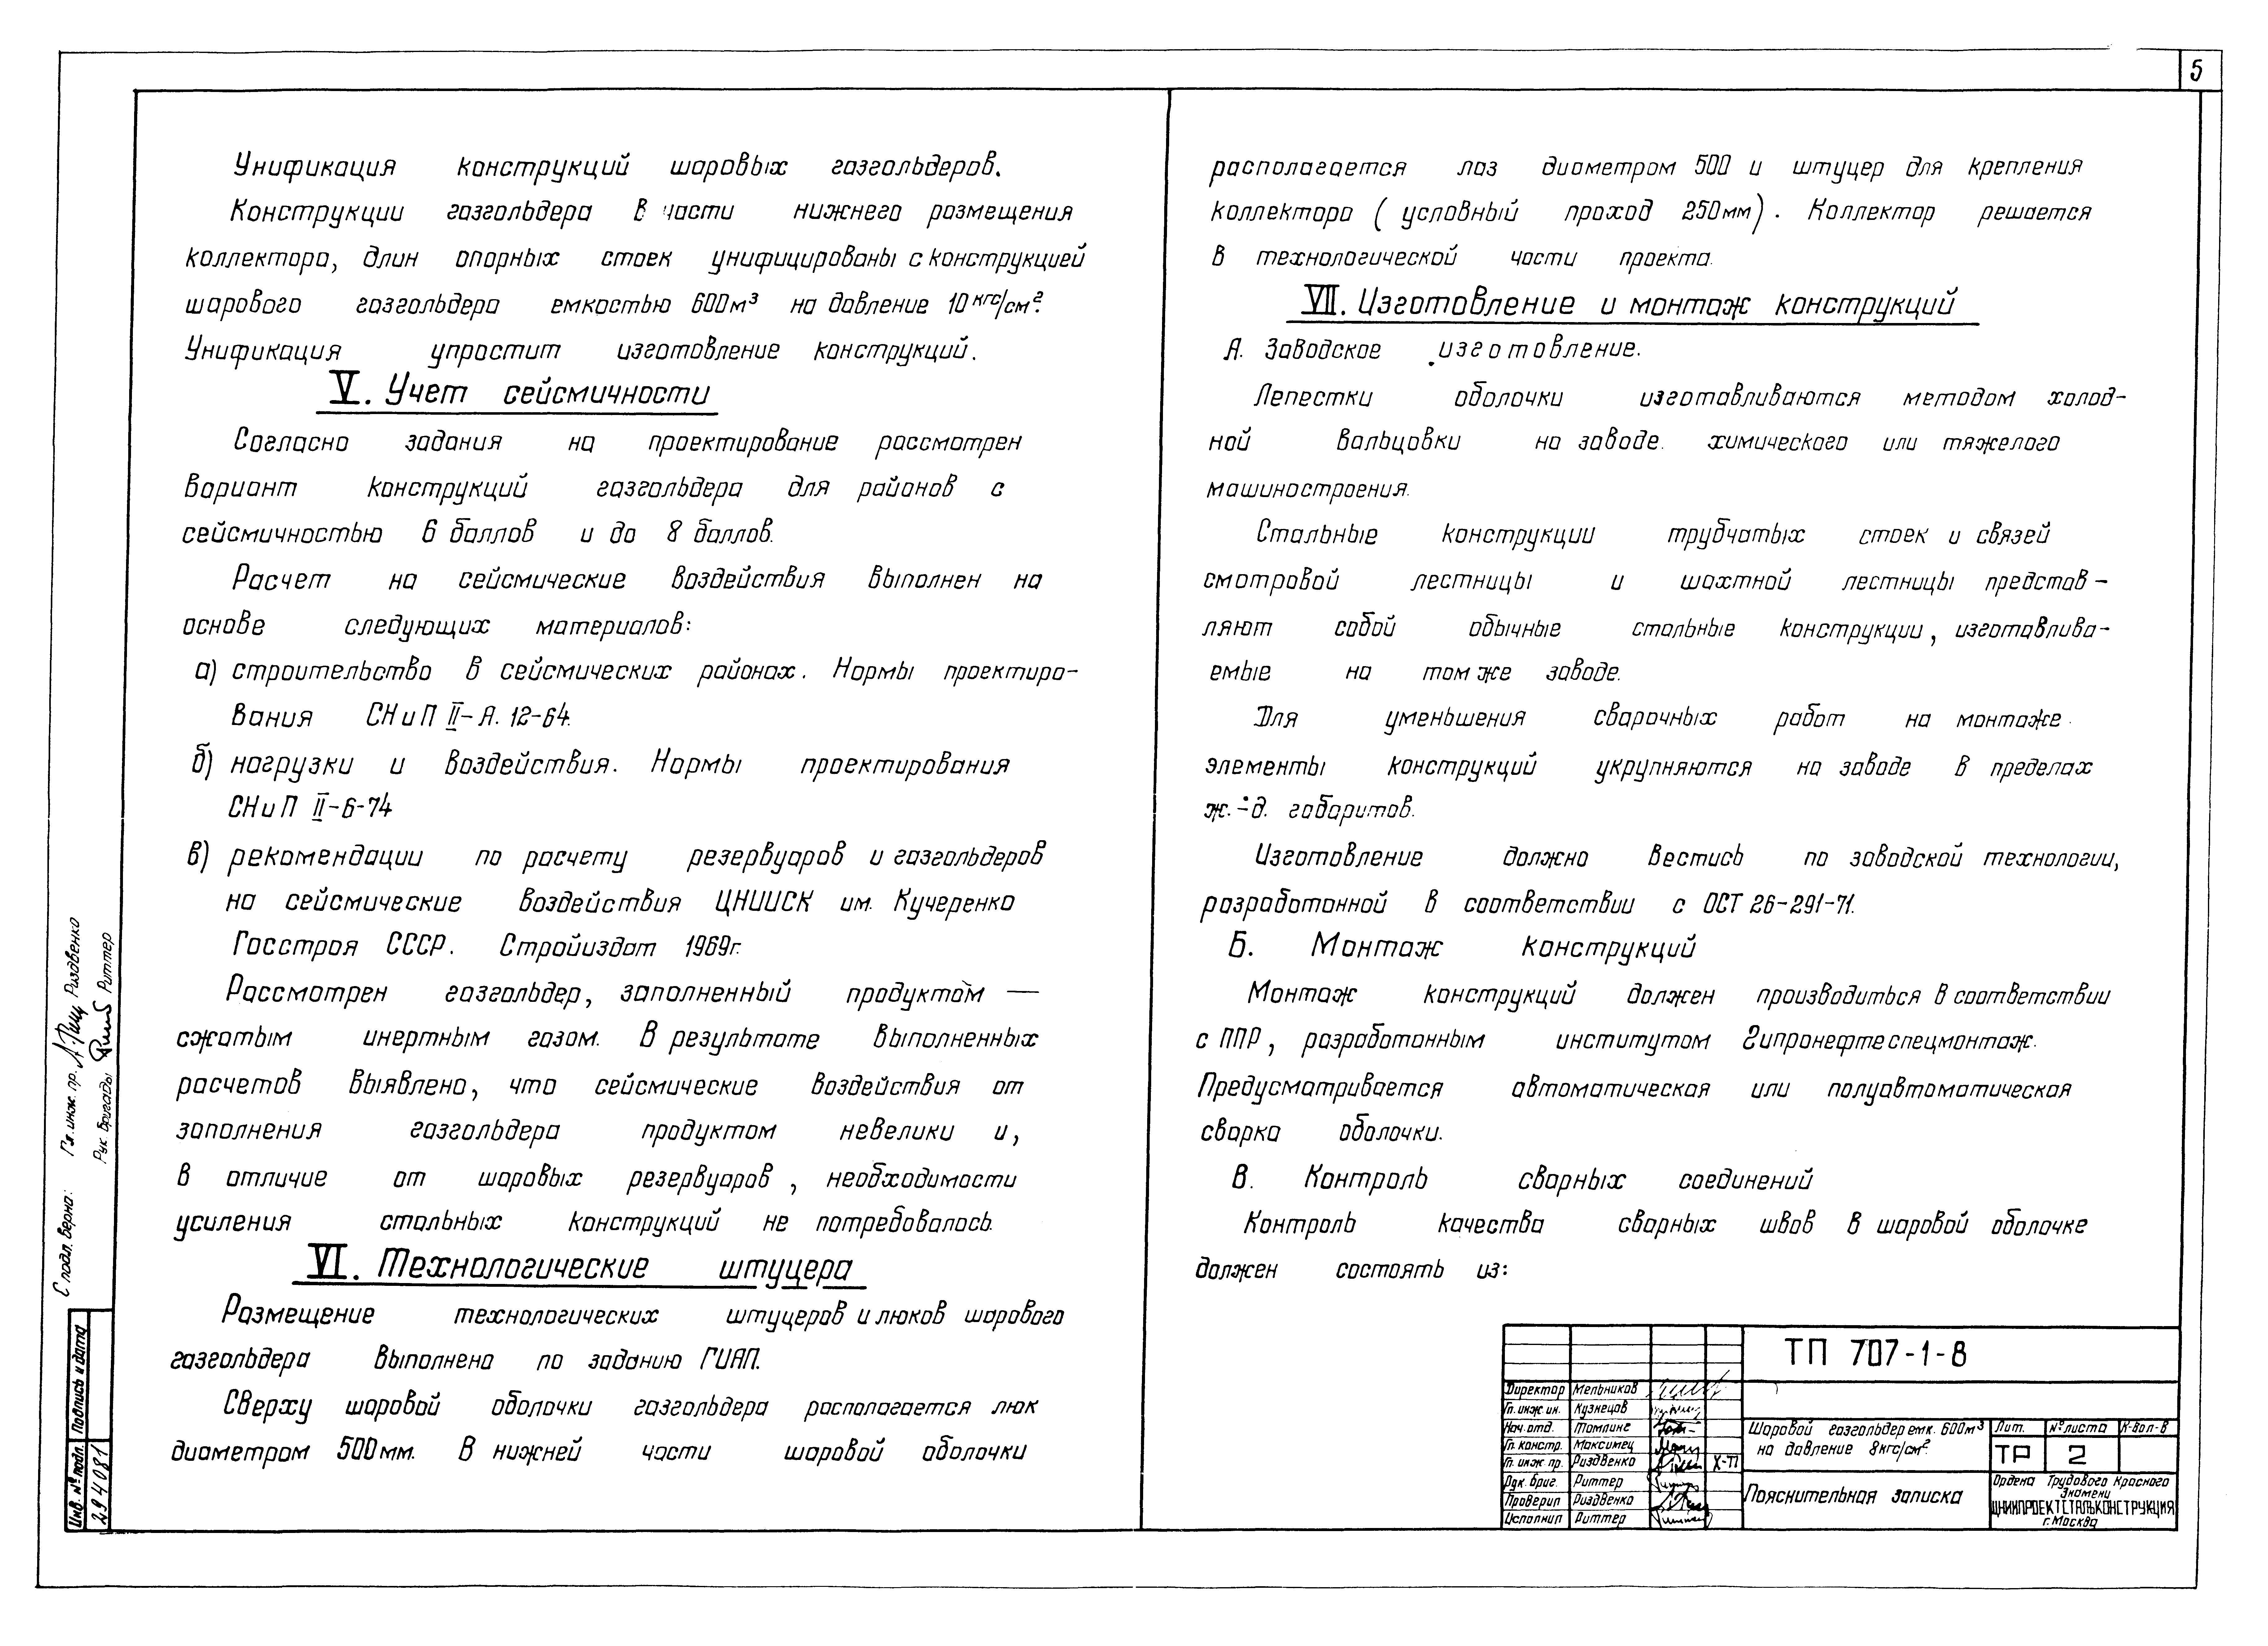 5
Унификация конструкций шаровых газгольдеров.
Конструкции газгольдера в части нижнего размещения
коллектора, длин опорных стоек унифицированы с конструкцией
шарового газгольдера емкостью 600м³ на давление 10 кгс/см².
Унификация упростит изготовление конструкций.
V. Учет сейсмичности
Согласно задания на проектирование рассмотрен
вариант конструкций газгольдера для районов с
сейсмичностью 6 баллов и до 8 баллов.
Расчет на сейсмические воздействия выполнен на
основе следующих материалов:
а) строительство в сейсмических районах. Нормы проектиро-
вания СНиП II-А. 12-64.
б) нагрузки и воздействия. Нормы проектирования
СНиП II-6-74
в) рекомендации по расчету резервуаров и газгольдеров
на сейсмические воздействия ЦНИИСК им. Кучеренко
Госстроя СССР. Стройиздат 1969г.
Рассмотрен газгольдер, заполненный продуктом —
сжатым инертным газом. В результате выполненных
расчетов выявлено, что сейсмические воздействия от
заполнения газгольдера продуктом невелики и,
в отличие от шаровых резервуаров, необходимости
усиления стальных конструкций не потребовалось.
VI. Технологические штуцера
Размещение технологических штуцеров и люков шарового
газгольдера выполнено по заданию ГИАП.
Сверху шаровой оболочки газгольдера располагается люк
диаметром 500мм. В нижней части шаровой оболочки
располагается лаз диаметром 500 и штуцер для крепления
коллектора (условный проход 250мм). Коллектор решается
в технологической части проекта.
VII. Изготовление и монтаж конструкций
А. Заводское изготовление.
Лепестки оболочки изготавливаются методом холод-
ной вальцовки на заводе. химического или тяжелого
машиностроения.
Стальные конструкции трубчатых стоек и связей
смотровой лестницы и шахтной лестницы представ-
ляют собой обычные стальные конструкции, изготавлива-
емые на том же заводе.
Для уменьшения сварочных работ на монтаже
элементы конструкций укрупняются на заводе в пределах
ж.-д. габаритов.
Изготовление должно вестись по заводской технологии,
разработанной в соответствии с ОСТ 26-291-71.
Б. Монтаж конструкций
Монтаж конструкций должен производиться в соответствии
с ППР, разработанным институтом Гипронефтеспецмонтаж.
Предусматривается автоматическая или полуавтоматическая
сварка оболочки.
В. Контроль сварных соединений
Контроль качества сварных швов в шаровой оболочке
должен состоять из:
С подл. верна: Гл. инж. пр. Риздвенко
Рук. бригады Риттер
Инв. № подл. Подпись и дата
294081
ТП 707-1-8
Директор Мельников
Гл. инж ин. Кузнецов
Нач. отд. Томлинг
Гл. констр. Максимец
Гл. инж пр. Риздвенко
Рук. бриг. Риттер
Проверил Риздвенко
Исполнил Риттер
Шаровой газгольдер емк. 600м³
на давление 8кгс/см²
Лит. № листа К-вол-в
ТР 2
Пояснительная записка
Ордена Трудового Красного
Знамени
ЦНИИПРОЕКТСТАЛЬКОНСТРУКЦИЯ
г. Москва